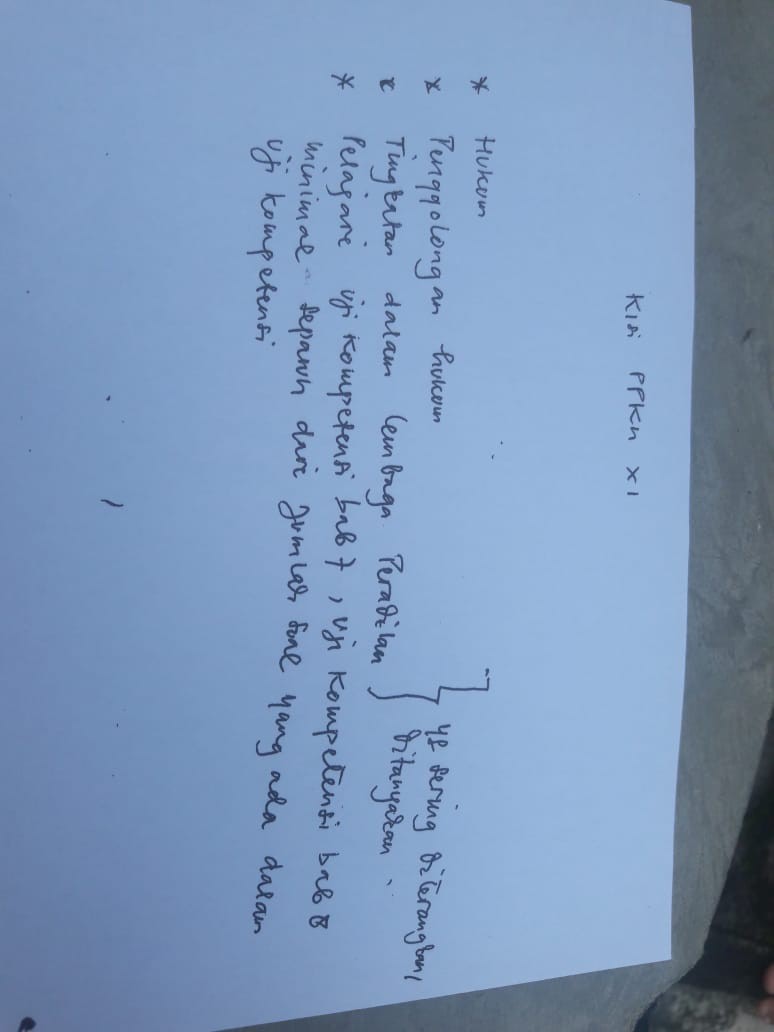 Kisi PPKn XI
* Hukum
* Penggolongan hukum
* Tingkatan dalam lembaga Peradilan
yg sering diterangkan/
ditanyakan.
* Pelajari uji kompetensi bab 7, uji kompetensi bab 8
minimal separuh dari jumlah soal yang ada dalam
uji kompetensi